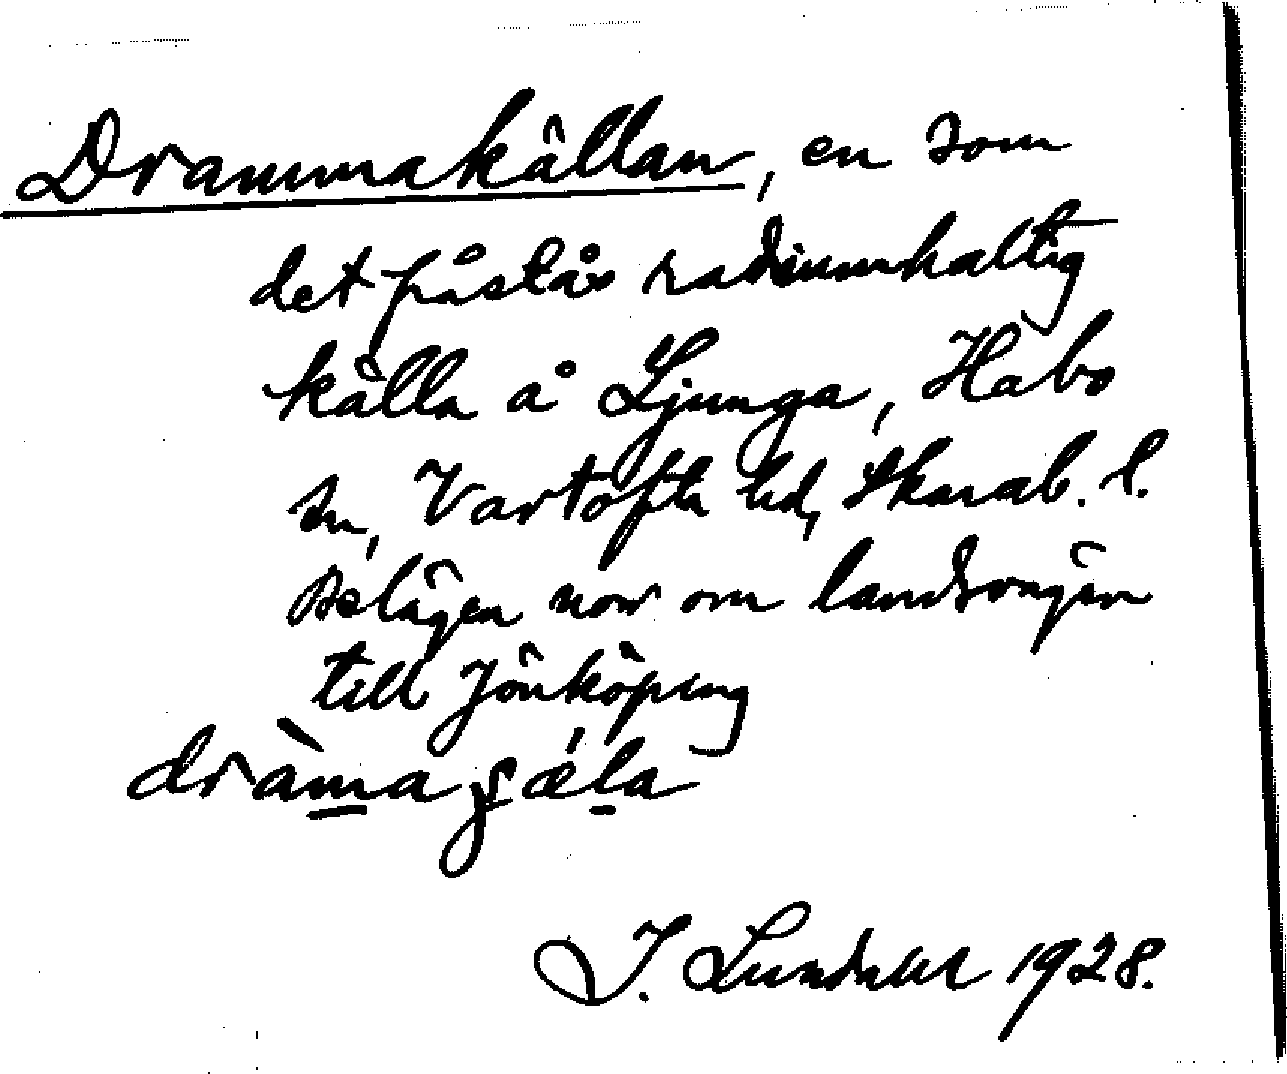 Drammakällan, en som
det påstås radiumhaltig
källa å Ljunga, Habo
sn, Vartofta hd, Skarab. l.
Belägen norr om landsvägen
till Jönköping
dràmaɕæ̀la
J. Lundahl 1928.